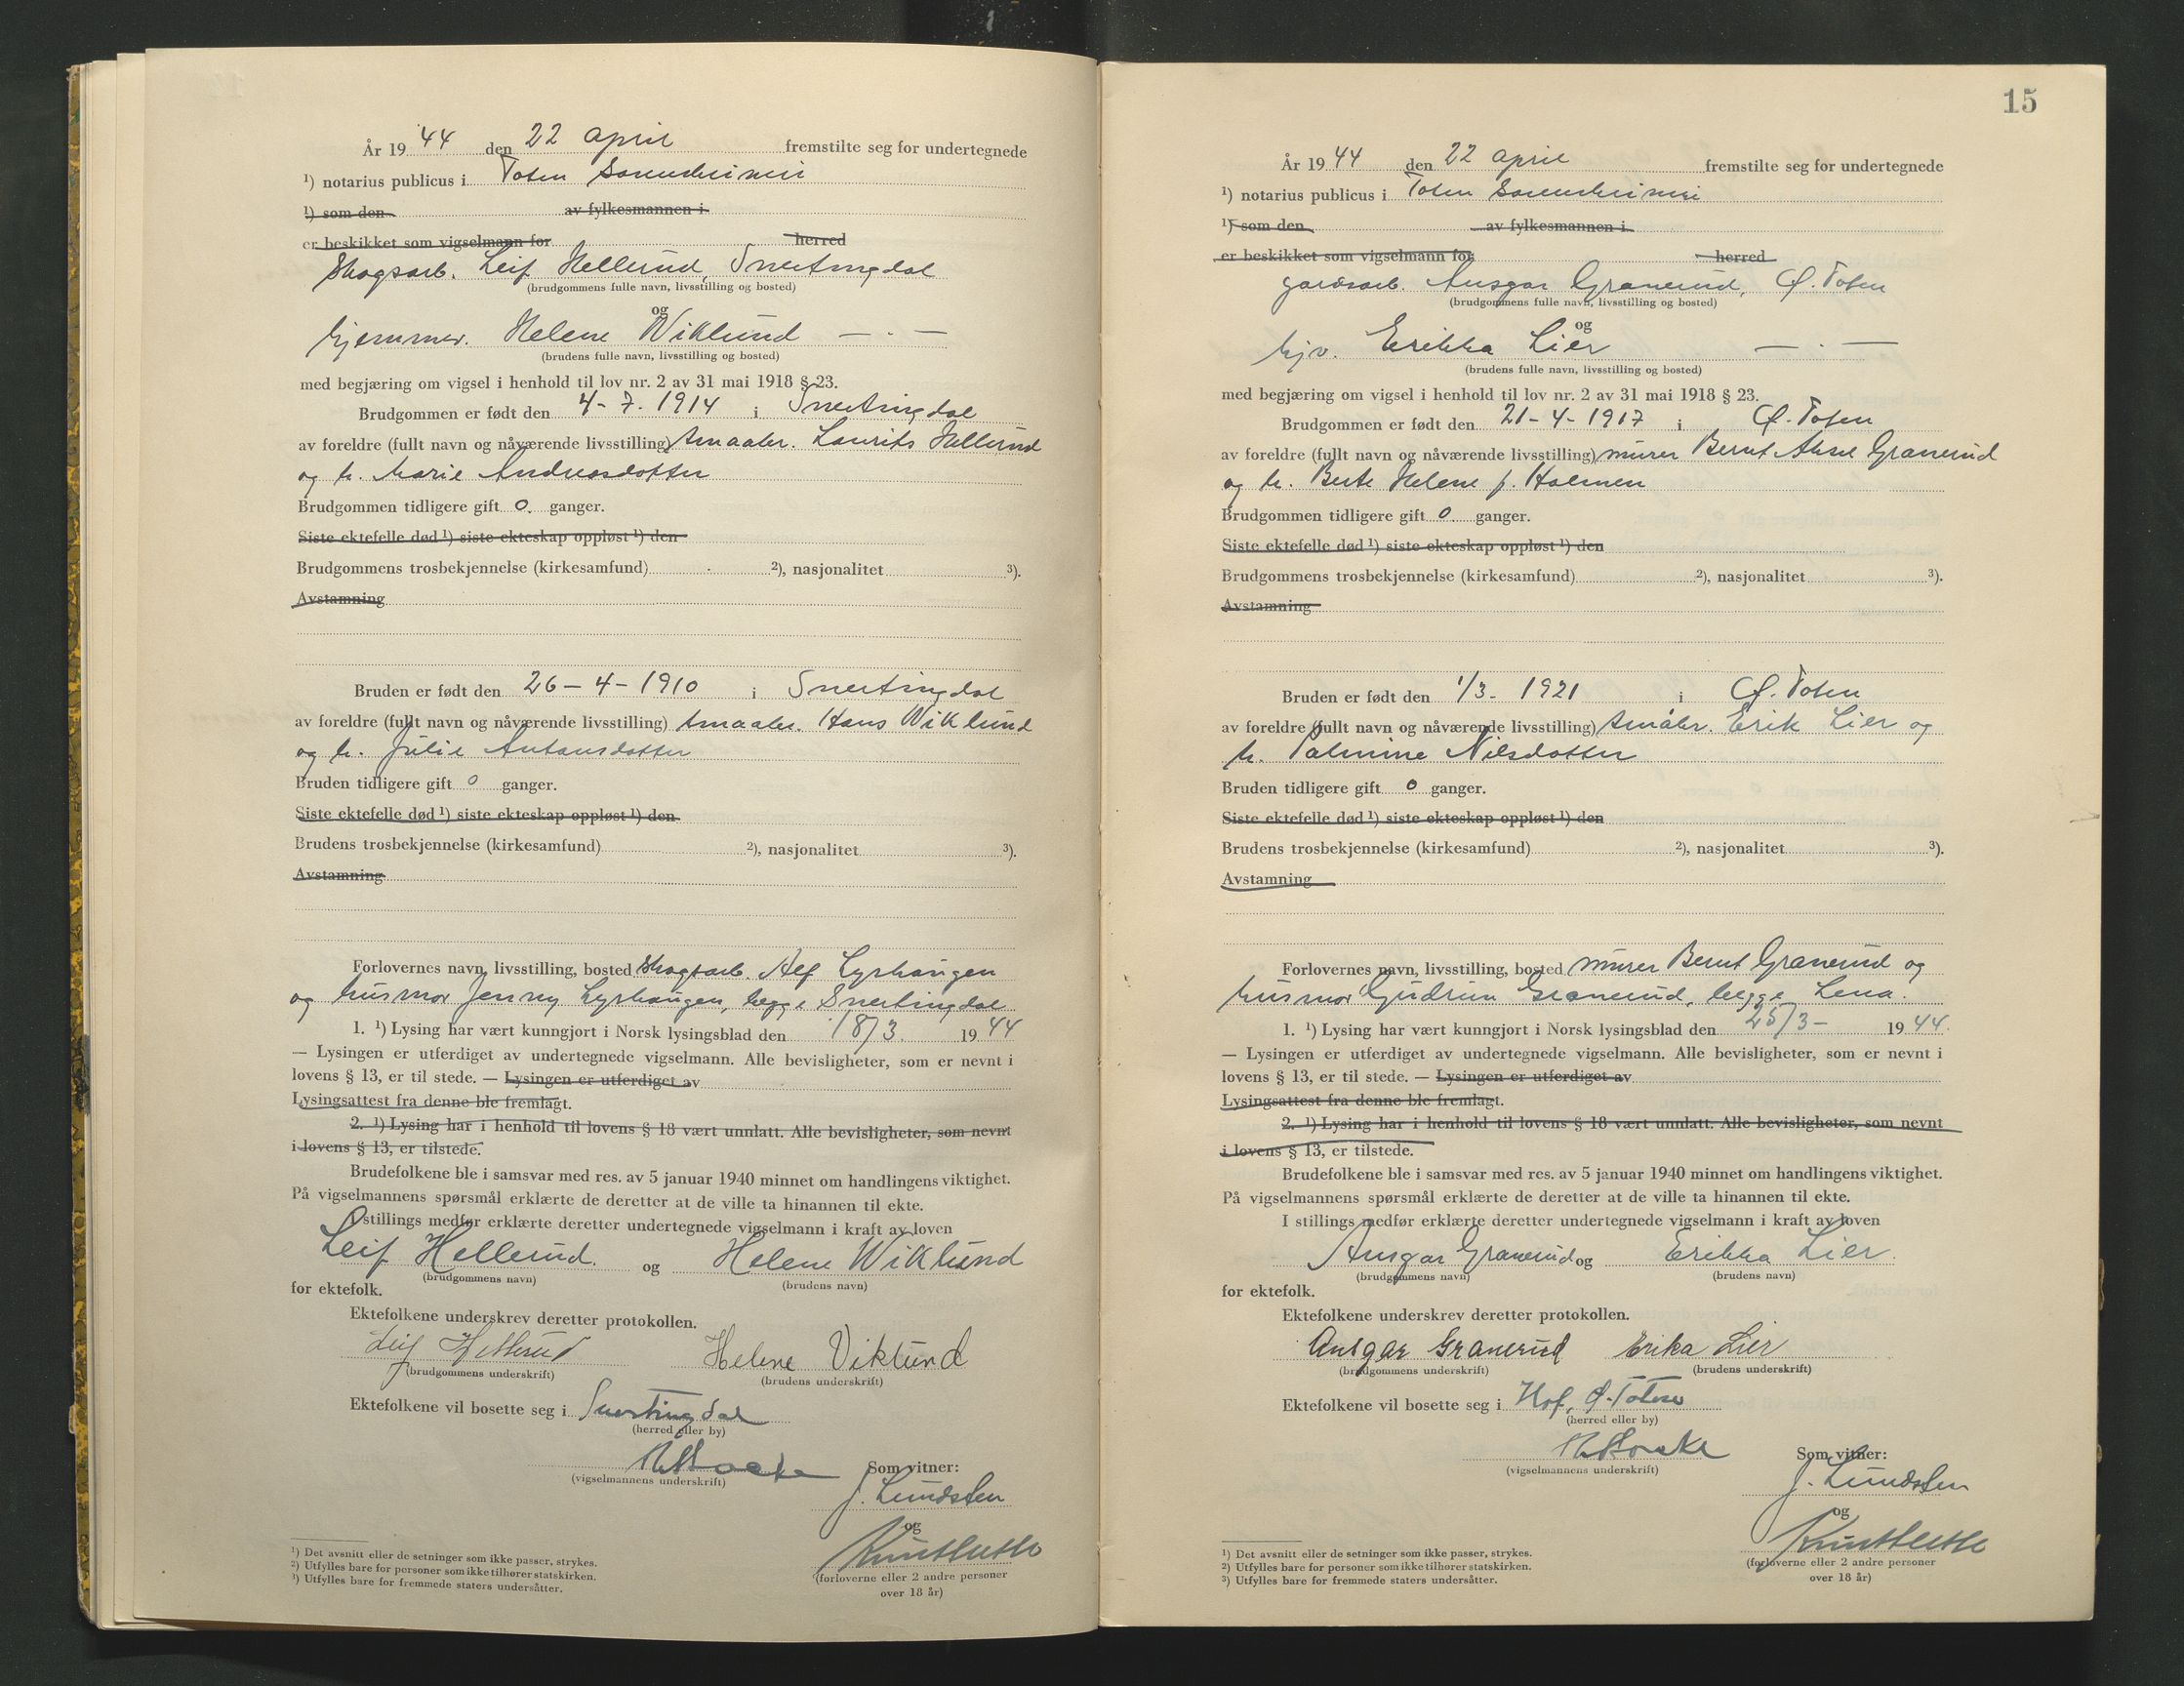 År 19 44 den 22 april fremstilte seg for undertegnede
¹) notarius publicus i Toten Sorenskriveri
¹) som den av fylkesmannen i
er beskikket som vigselmann for herred
Skogsarb. Leif Hellerud, Snertingdal
(brudgommens fulle navn, livsstilling og bosted)
og
hjemmev. Helene Wiklund — . —
(brudens fulle navn, livsstilling og bosted)
med begjæring om vigsel i henhold til lov nr. 2 av 31 mai 1918 § 23.
Brudgommen er født den 4-7-1914 i Snertingdal
av foreldre (fullt navn og nåværende livsstilling) småabr. Laurits Hellerud
og h. Marie Andreasdotter
Brudgommen tidligere gift 0. ganger.
Siste ektefelle død ¹) siste ekteskap oppløst ¹) den
Brudgommens trosbekjennelse (kirkesamfund) ²), nasjonalitet ³).
Avstamning
Bruden er født den 26-4-1910 i Snertingdal
av foreldre (fullt navn og nåværende livsstilling) Hans Wiklund
og h. Julie Antonsdotter
Bruden tidligere gift 0 ganger.
Siste ektefelle død ¹) siste ekteskap oppløst ¹) den
Brudens trosbekjennelse (kirkesamfund) ²), nasjonalitet ³).
Avstamning
Forlovernes navn, livsstilling, bosted skogsarb. Alf Lyshaugen
og husmor Jenny Lyshaugen, begge Snertingdal
1. ¹) Lysing har vært kunngjort i Norsk lysingsblad den 18/3. 19 44
— Lysingen er utferdiget av undertegnede vigselmann. Alle bevisligheter, som er nevnt i
lovens § 13, er til stede. — Lysingen er utferdiget av
Lysingsattest fra denne ble fremlagt.
2. ¹) Lysing har i henhold til lovens § 18 vært unnlatt. Alle bevisligheter, som nevnt
i lovens § 13, er tilstede.
Brudefolkene ble i samsvar med res. av 5 januar 1940 minnet om handlingens viktighet.
På vigselmannens spørsmål erklærte de deretter at de ville ta hinannen til ekte.
I stillings medfør erklærte deretter undertegnede vigselmann i kraft av loven
Leif Hellerud. og Helene Wiklund
(brudgommens navn) (brudens navn)
for ektefolk.
Ektefolkene underskrev deretter protokollen.
Leif Hellerud Helene Viklund
(brudgommens underskrift) (brudens underskrift)
Ektefolkene vil bosette seg i Snertingdal
(herred eller by)
(vigselmannens underskrift) Som vitner:
J. Lundsten
og
(forloverne eller 2 andre personer
over 18 år)
¹) Det avsnitt eller de setninger som ikke passer, strykes.
²) Utfylles bare for personer som ikke tilhører statskirken.
³) Utfylles bare for fremmede staters undersåtter.
15
År 19 44 den 22 april fremstilte seg for undertegnede
¹) notarius publicus i Toten Sorenskriveri
¹) som den av fylkesmannen i
er beskikket som vigselmann for herred
gardsarb. Ansgar Granerud, Ø. Toten
(brudgommens fulle navn, livsstilling og bosted)
og
hjv. Erikka Lier — . —
(brudens fulle navn, livsstilling og bosted)
med begjæring om vigsel i henhold til lov nr. 2 av 31 mai 1918 § 23.
Brudgommen er født den 21-4-1917 i Ø. Toten
av foreldre (fullt navn og nåværende livsstilling) murer Bernt Granerud
og h. Berte Helene f. Holmen
Brudgommen tidligere gift 0. ganger.
Siste ektefelle død ¹) siste ekteskap oppløst ¹) den
Brudgommens trosbekjennelse (kirkesamfund) ²), nasjonalitet ³).
Avstamning
Bruden er født den 1/3-1921 i Ø. Toten
av foreldre (fullt navn og nåværende livsstilling) Erik Lier og
h. Palmine Nilsdotter
Bruden tidligere gift 0 ganger.
Siste ektefelle død ¹) siste ekteskap oppløst ¹) den
Brudens trosbekjennelse (kirkesamfund) ²), nasjonalitet ³).
Avstamning
Forlovernes navn, livsstilling, bosted murer Bernt Granerud og
husmor Gudrun Granerud, begge Lena.
1. ¹) Lysing har vært kunngjort i Norsk lysingsblad den 25/3- 19 44.
— Lysingen er utferdiget av undertegnede vigselmann. Alle bevisligheter, som er nevnt i
lovens § 13, er til stede. — Lysingen er utferdiget av
Lysingsattest fra denne ble fremlagt.
2. ¹) Lysing har i henhold til lovens § 18 vært unnlatt. Alle bevisligheter, som nevnt
i lovens § 13, er tilstede.
Brudefolkene ble i samsvar med res. av 5 januar 1940 minnet om handlingens viktighet.
På vigselmannens spørsmål erklærte de deretter at de ville ta hinannen til ekte.
I stillings medfør erklærte deretter undertegnede vigselmann i kraft av loven
Ansgar Granerud og Erikka Lier.
(brudgommens navn) (brudens navn)
for ektefolk.
Ektefolkene underskrev deretter protokollen.
Ansgar Granerud Erika Lier
(brudgommens underskrift) (brudens underskrift)
Ektefolkene vil bosette seg i Hof, Ø-Toten
(herred eller by)
(vigselmannens underskrift) Som vitner:
J. Lundsten
og
(forloverne eller 2 andre personer
over 18 år)
¹) Det avsnitt eller de setninger som ikke passer, strykes.
²) Utfylles bare for personer som ikke tilhører statskirken.
³) Utfylles bare for fremmede staters undersåtter.